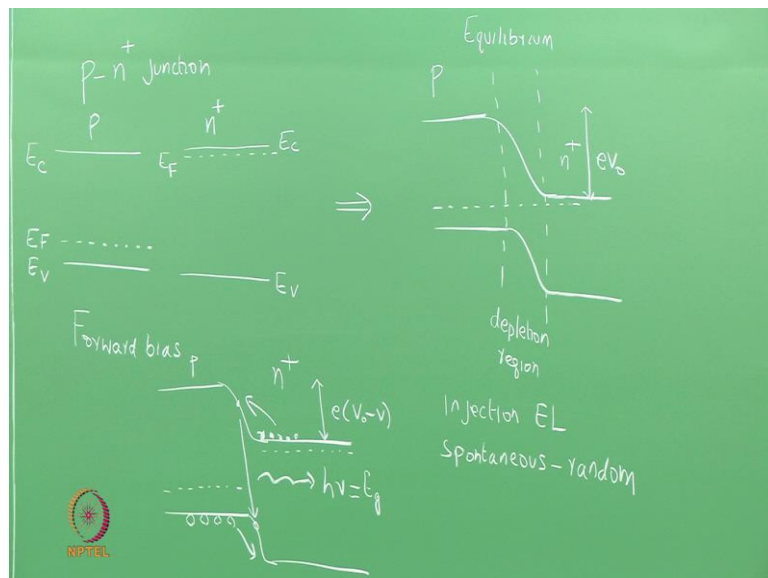 p-n+ junction
p n+
Ec EF Ec
EF
Ev Ev
Equilibrium
p
n+ eV0
⇒
depletion
region
Forward bias
p n+
e(V0-V)
hν=Eg
Injection EL
Spontaneous-random
NPTEL